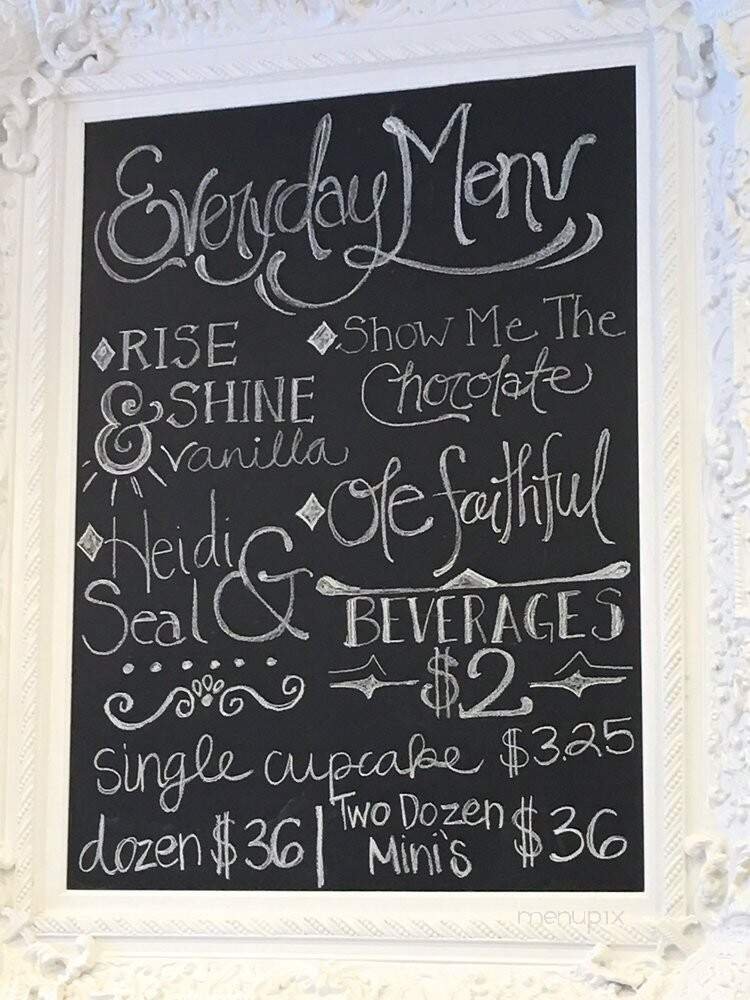 Everyday Menu
RISE
& SHINE
vanilla
Show Me The
Chocolate
Heidi
& Seal
Ole faithful
BEVERAGES
$2
single cupcake $3.25
dozen $36 | Two Dozen
Mini's $36
menupix